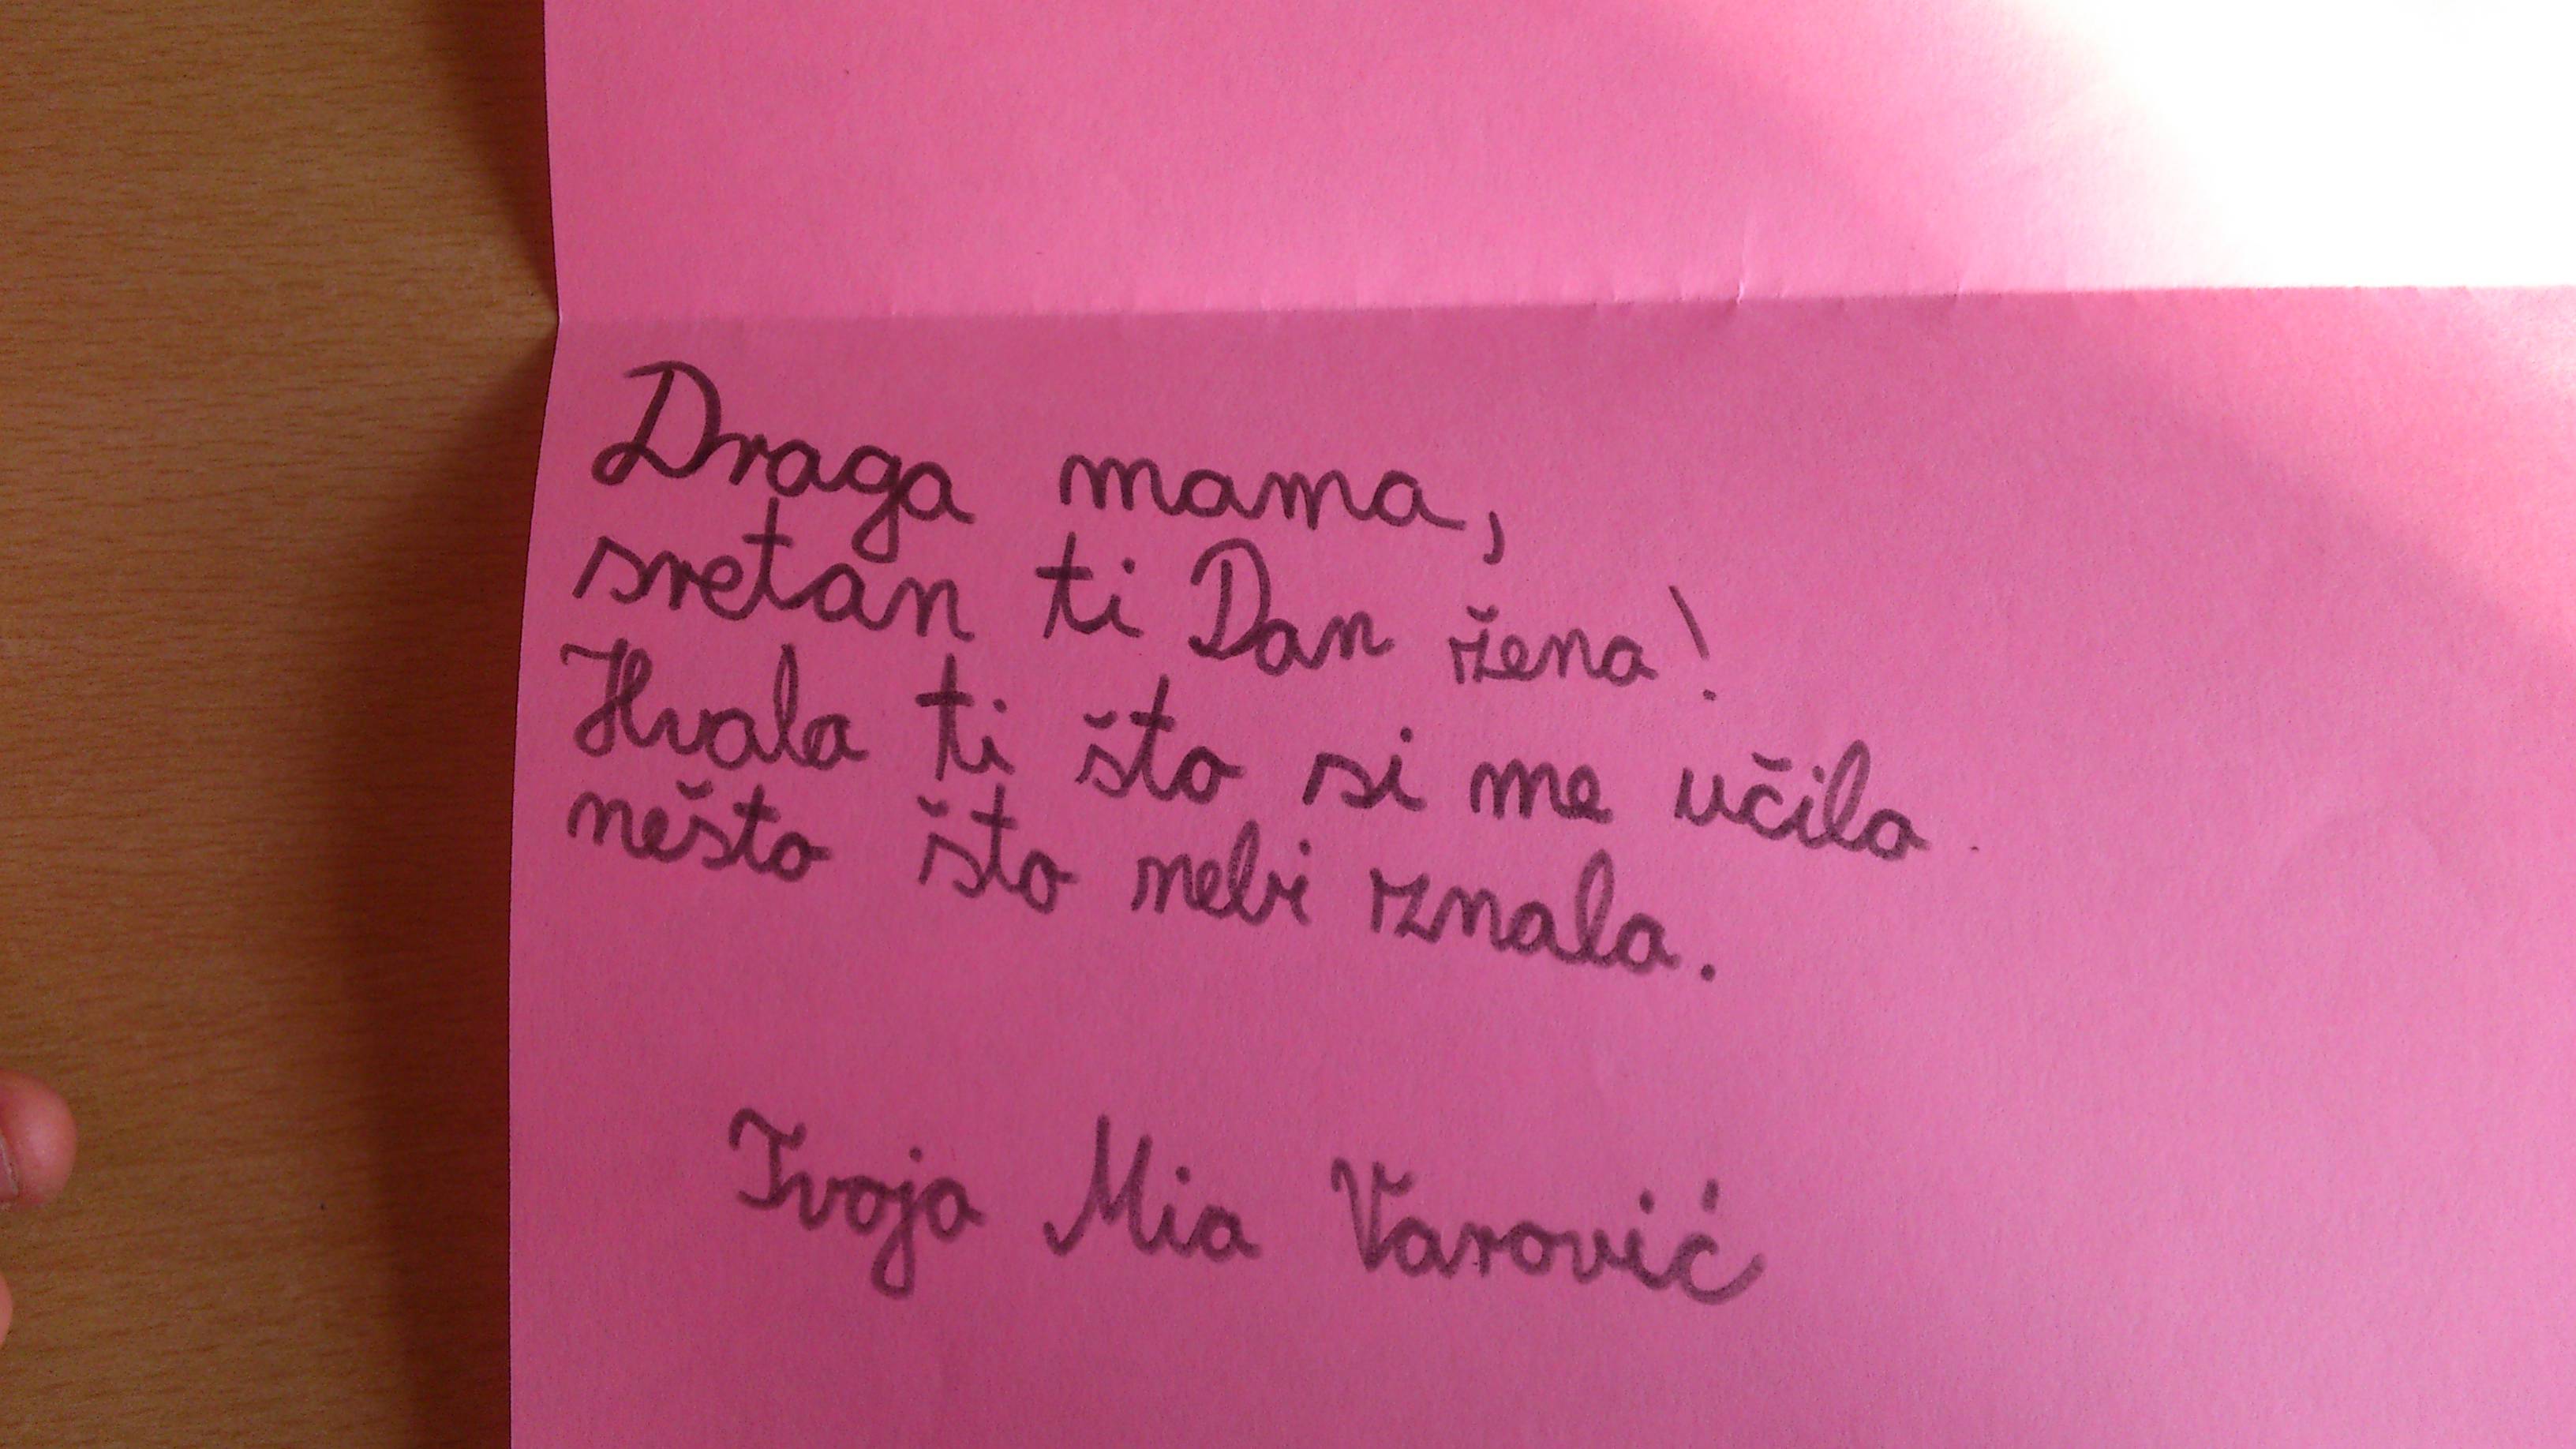 Draga mama,
sretan ti Dan žena!
Hvala ti što si me učila
nešto što nebi znala.
Tvoja Mia Varović